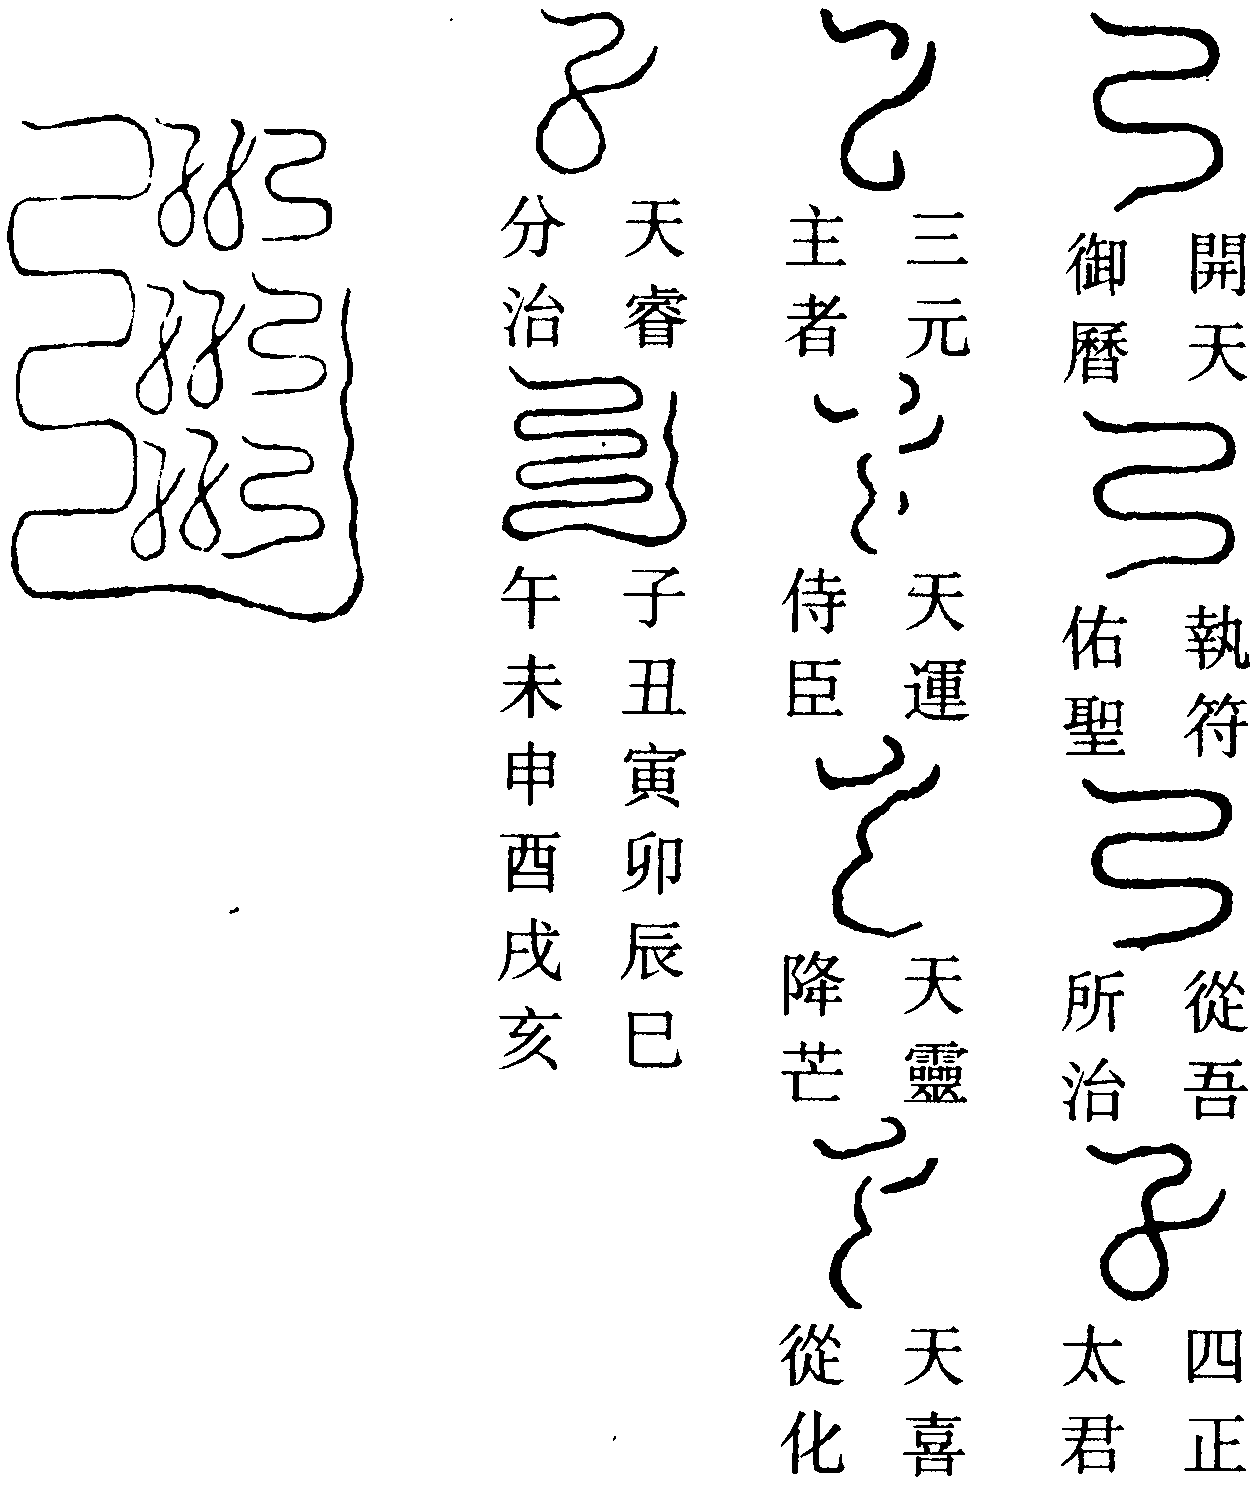 開天御曆
執符佑聖
從吾所治
四正太君
三元主者
天運侍臣
天靈降芒
天喜從化
天睿分治
子丑寅卯辰巳
午未申酉戌亥